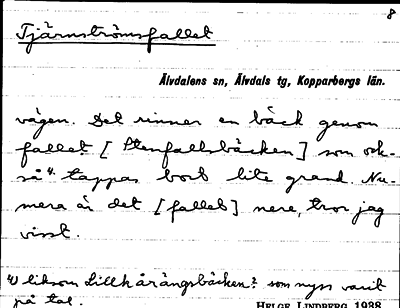 8
Tjärnströmsfallet
Älvdalens sn, Älvdals tg, Kopparbergs län.
vägen. Det rinner en bäck genom
fallet [Stenfallsbäcken] som ock-
så ⁴⁾ tappas bort lite grand. Nu-
mera är det [fallet] nere, tror jag
visst.
⁴⁾ liksom Lillhårängsbäcken? som nyss varit
på tal.
HELGE LINDBERG 1938